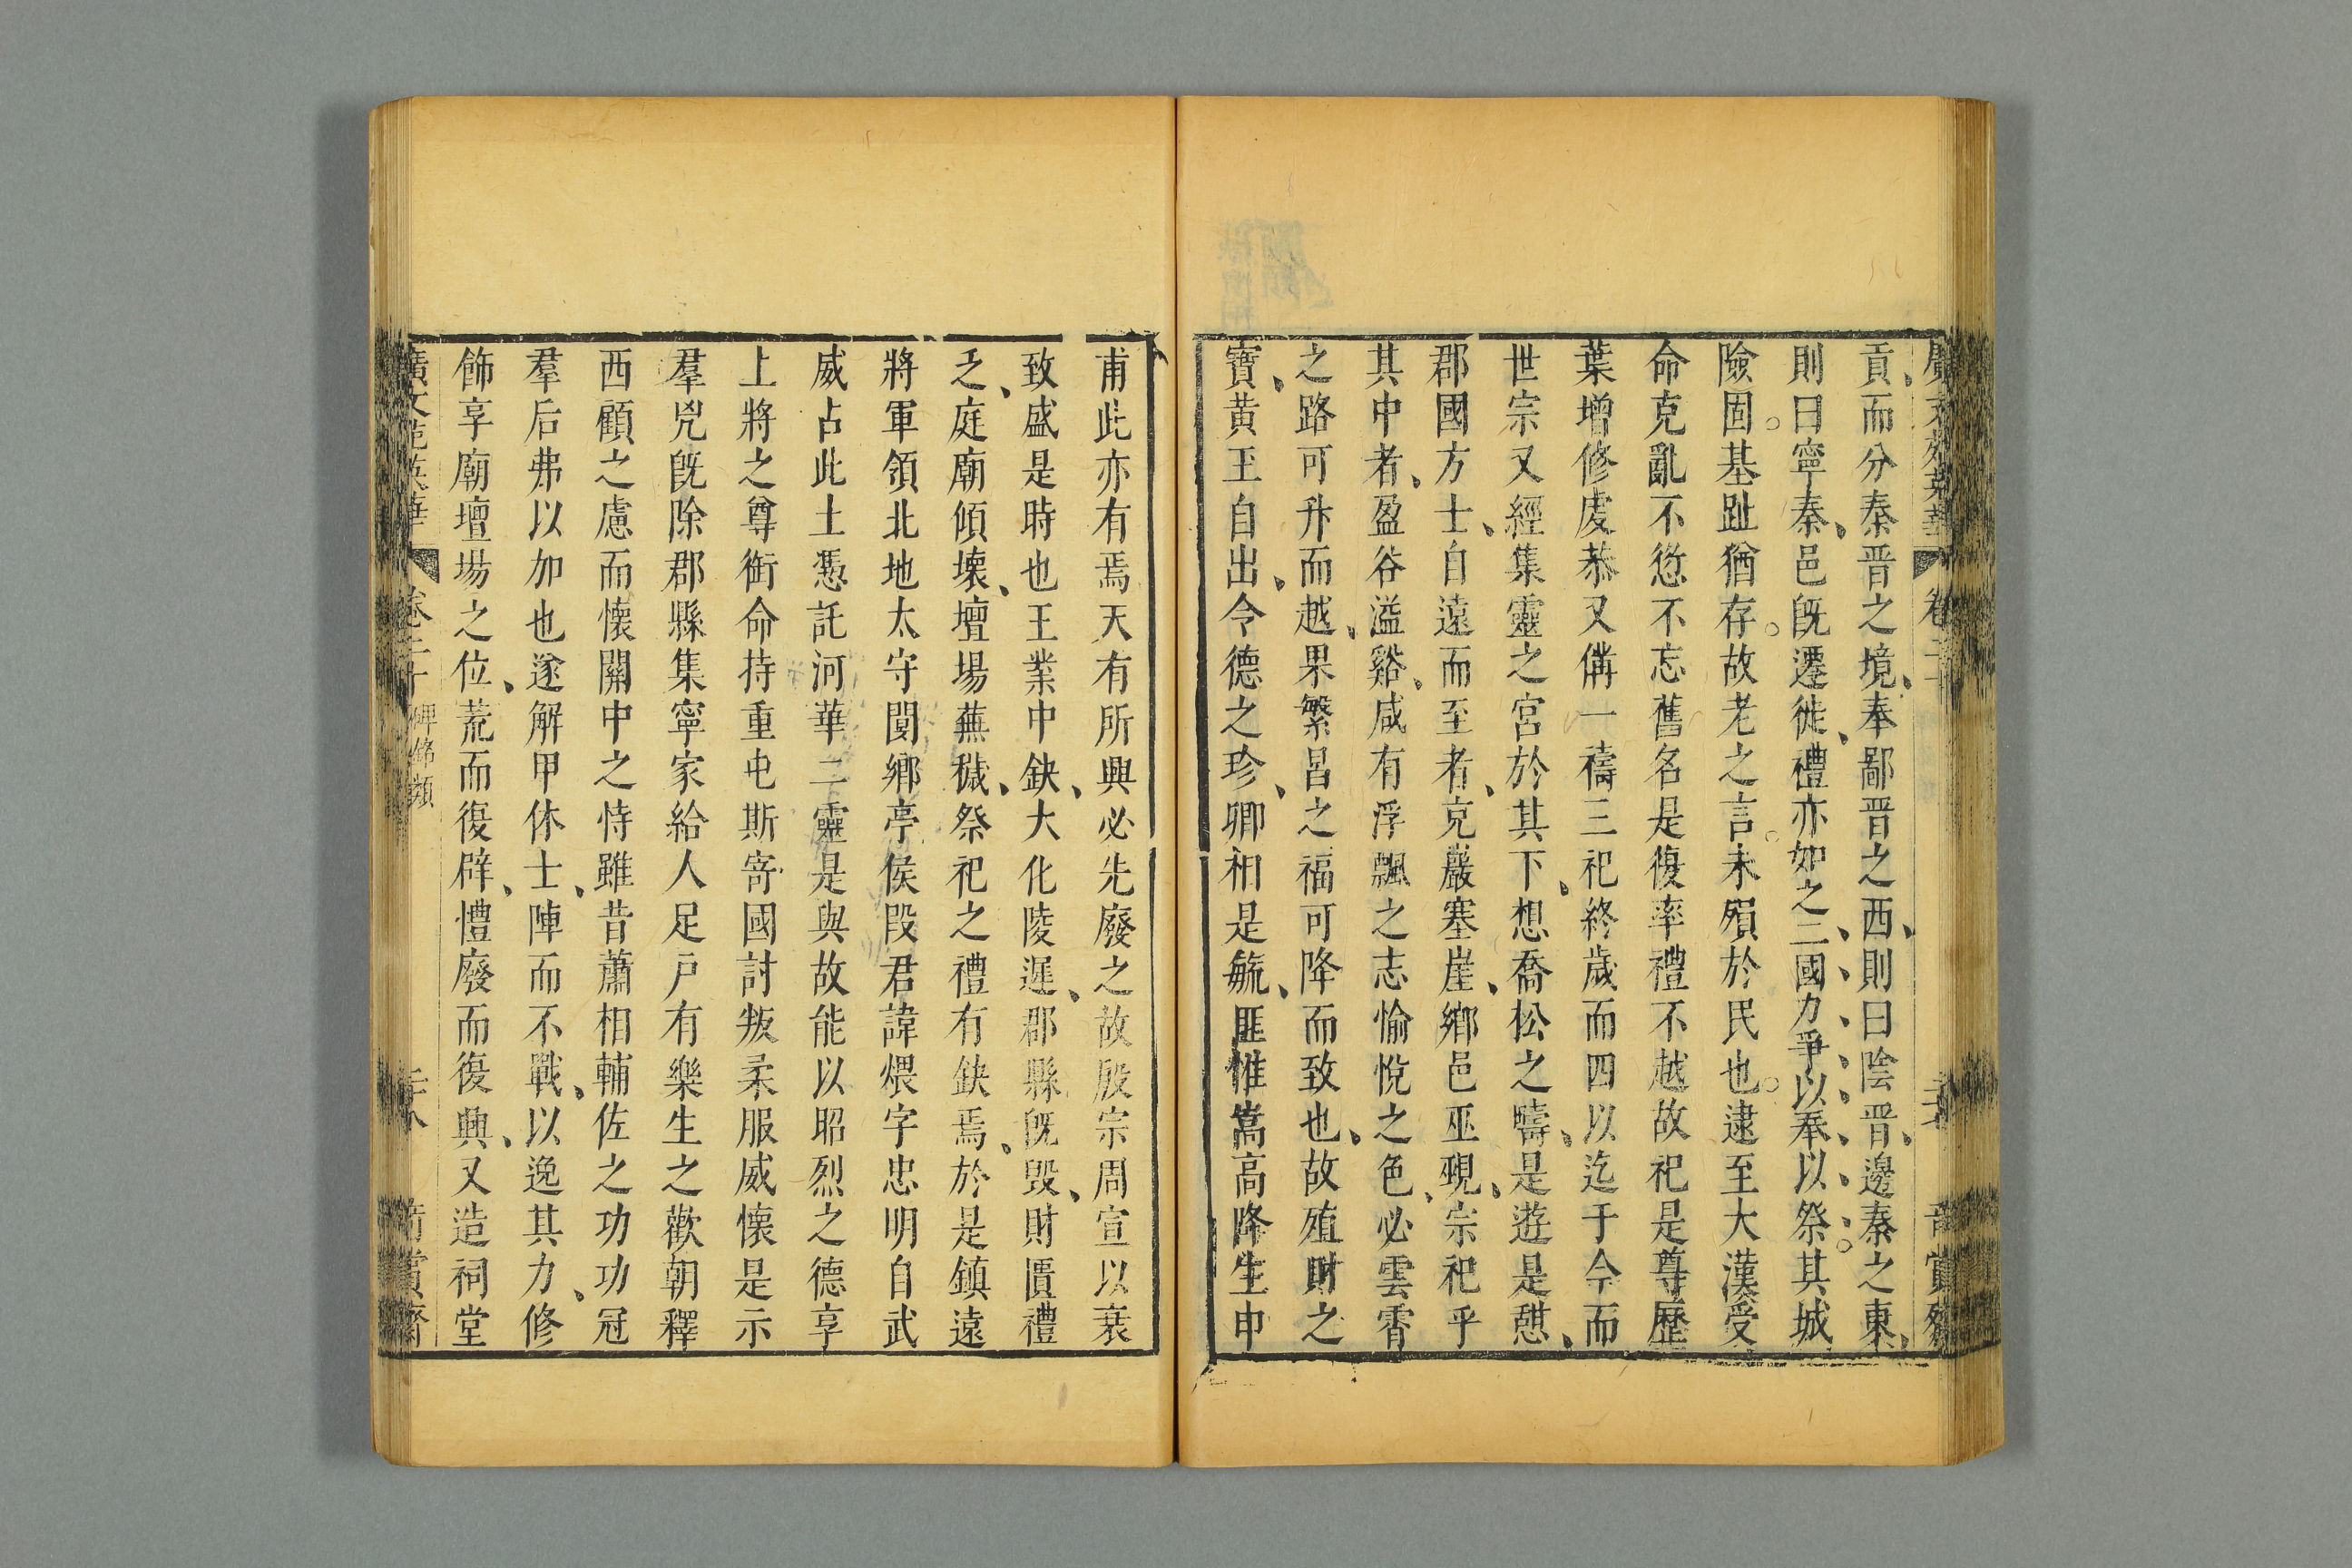 貢而分秦晉之境奉鄙晉之西則曰陰晉邊秦之東
則曰寧秦秦邑旣遷徙禮亦如之二國力爭以奉以祭其城
險固基趾猶存故老之言未殞於民也逮至大漢受
命克亂不愆不忘舊名是復率禮不越故祀是尊歷
葉增修虔恭又備一禱三祀終歲而四以迄于今而
世宗又經集靈之宮於其下想喬松之疇是遊是憇
郡國方士自遠而至者克巖塞崖鄉邑巫覡宗祀乎
其中者盈谷溢谿咸有浮飄之志愉悅之色必雲霄
之路可升而越果繁昌之福可降而致也故殖財之
寶黃玉自出令德之珍卿相是毓匪惟嵩高降生申
甫此亦有焉天有所興必先廢之故殷宗周宣以衰
致盛是時也王業中缺大化陵遲郡縣旣毀財匱禮
乏庭廟傾壞壇場蕪穢祭祀之禮有缺焉於是鎮遠
將軍領北地太守閿鄉亭侯段君諱煨字忠明自武
威占此土憑託河華二靈是與故能以昭烈之德享
上將之尊銜命持重屯斯寄國討叛柔服威懷是示
羣兇旣除郡縣集寧家給人足戸有樂生之歡朝釋
西顧之慮而懷關中之恃雖昔蕭相輔佐之功功冠
羣后弗以加也遂解甲休士陣而不戰以逸其力修
飾享廟壇場之位荒而復辟禮廢而復興又造祠堂
廣文苑英華 卷二十 碑銘類